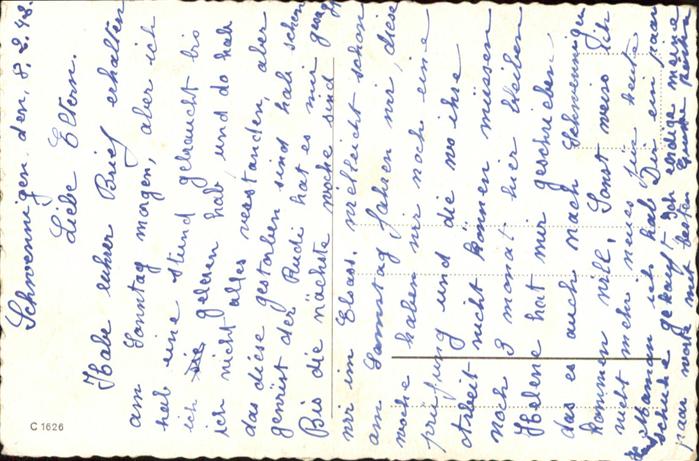 Schwenningen den, 8. 2. 48.
Liebe Eltern.
Habe euhrer Brief erhalten
am Sonntag morgen, aber ich
hab eine stund gebraucht bis
ich gelesen hab und do hab
ich nicht alles verstanden, aber
das diese gestorben sind hab schon
gewüst der Rudi hat es mir gesagt
Bis die nächste woche sind
wir im Elsass. vielleicht schon
am Samstag fahren wir, diese
woche haben wir noch eine
prüfung und die wo ihre
Arbeit nicht können müssen
noch 3 monat hier bleiben
Helene hat mir geschrieben
das es auch nach Schwenningen
kommen will. Sonst weiss ich
nicht mehr neues für heute
Maman ich hab Dir ein paar
schuhe gekauft. Ich endige meine
paar mit besten Grüsse
C 1626